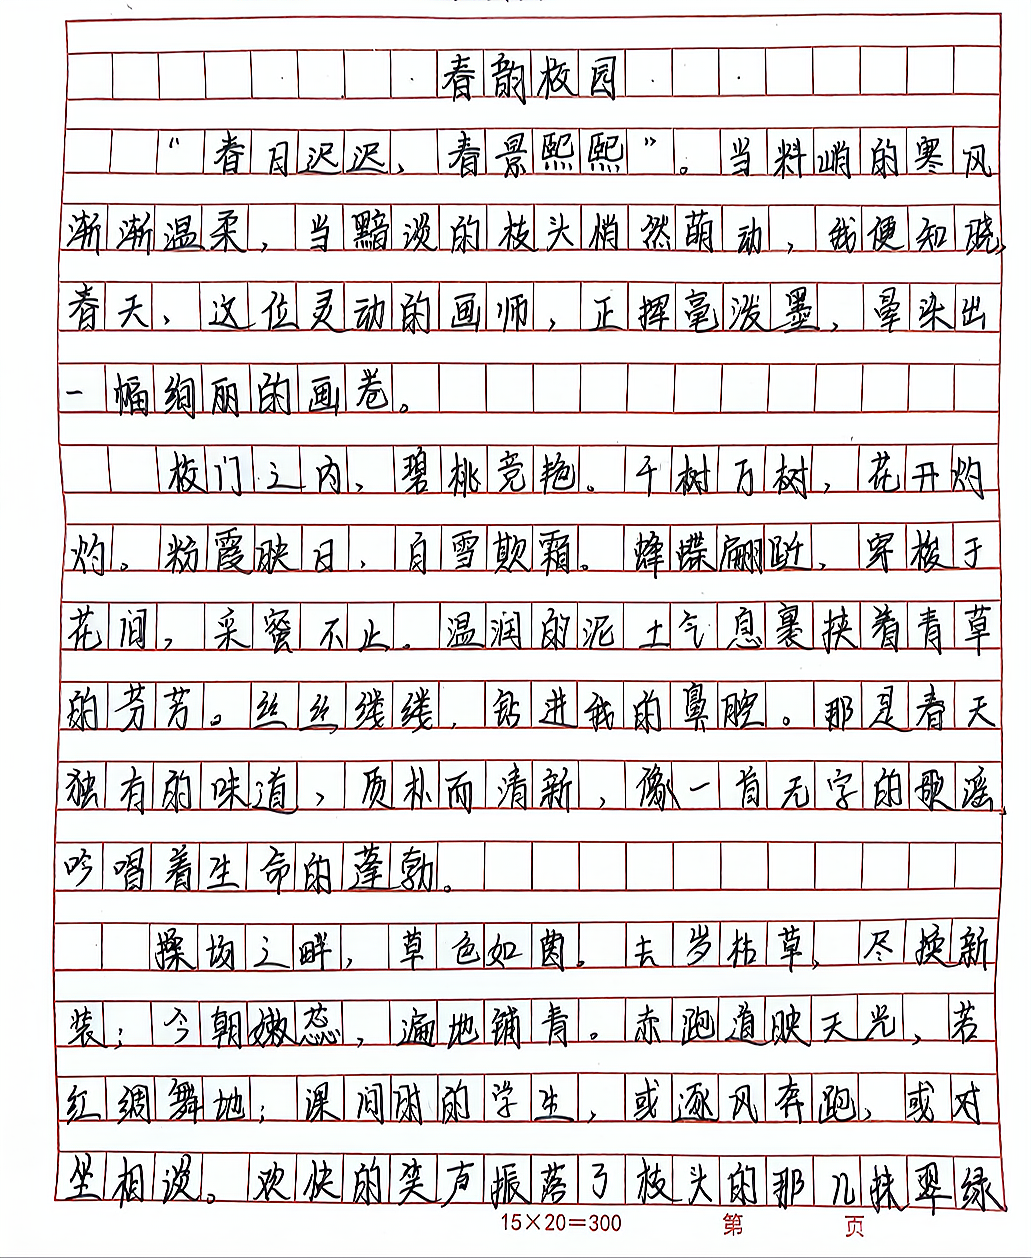 春韵校园
“春日迟迟，春景熙熙”。当料峭的寒风
渐渐温柔，当黯淡的枝头悄然萌动，我便知晓，
春天，这位灵动的画师，正挥毫泼墨，晕染出
一幅绚丽的画卷。
校门之内，碧桃竞艳。千树万树，花开灼
灼。粉霞映日，白雪欺霜。蜂蝶翩跹，穿梭于
花间，采蜜不止。温润的泥土气息裹挟着青草
的芬芳。丝丝缕缕，钻进我的鼻腔。那是春天
独有的味道，质朴而清新，像一首无字的歌谣，
吟唱着生命的蓬勃。
操场之畔，草色如茵。去岁枯草，尽换新
装；今朝嫩蕊，遍地铺青。赤跑道映天光，若
红绸舞地；课间时的学生，或逐风奔跑，或对
坐相谈。欢快的笑声振落了枝头的那几抹翠绿
15×20=300 第 页